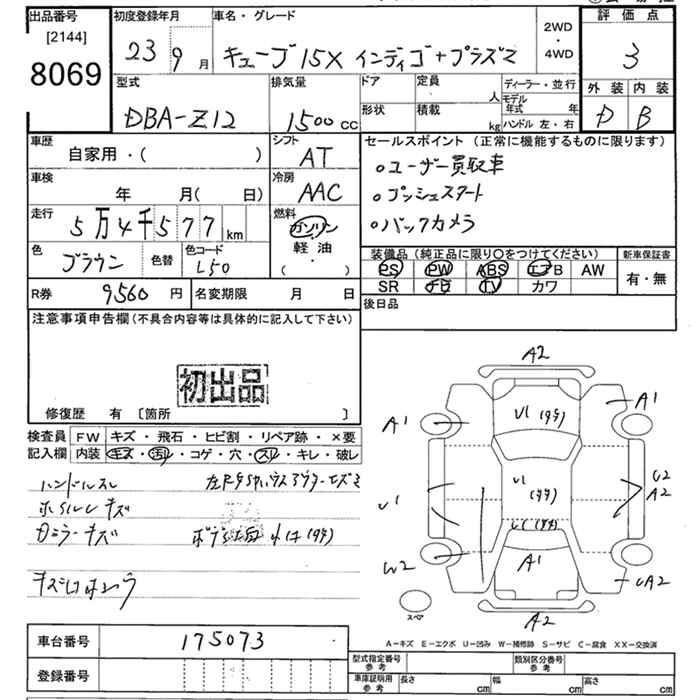 出品番号
[2144]
8069
初度登録年月
23 9月
車名・グレード
キューブ 15X インディゴ+プラズマ
2WD
・
4WD
評価点
3
外装 内装
D B
型式
DBA-Z12
排気量
1500cc
ドア
定員
人
形状
積載
kg
ディーラー・並行
モデル年式 年
ハンドル 左・右
車歴
自家用・( )
シフト
AT
車検
年 月( 日)
冷房
AAC
走行
5万4千577km
燃料
ガソリン
軽油
( )
色
ブラウン
色替
色コード
L50
R券
9560円
名変期限 月 日
セールスポイント(正常に機能するものに限ります)
○ユーザー買取車
○プッシュスタート
○バックカメラ
装備品(純正品に限り○をつけてください)
PS PW ABS エアB AW
SR ナビ TV カワ
新車保証書
有・無
後日品
注意事項申告欄(不具合内容等は具体的に記入して下さい)
初出品
修復歴 有 〔箇所 〕
検査員記入欄
FW キズ・飛石・ヒビ割・リペア跡・×要
内装 キズ・汚レ・コゲ・穴・スレ・キレ・破レ
ハンドルスレ
キズ
ミラーキズ
A2
A1
A1
U1
U1
U1
U2
A2
W2
A1
A2
スペア
A-キズ E-エクボ U-凹み W-補修跡 S-サビ C-腐食 XX-交換済
車台番号
175073
登録番号
型式指定番号
参考
類別区分番号
参考
車庫証明用
参考
長さ cm 幅 cm 高さ cm